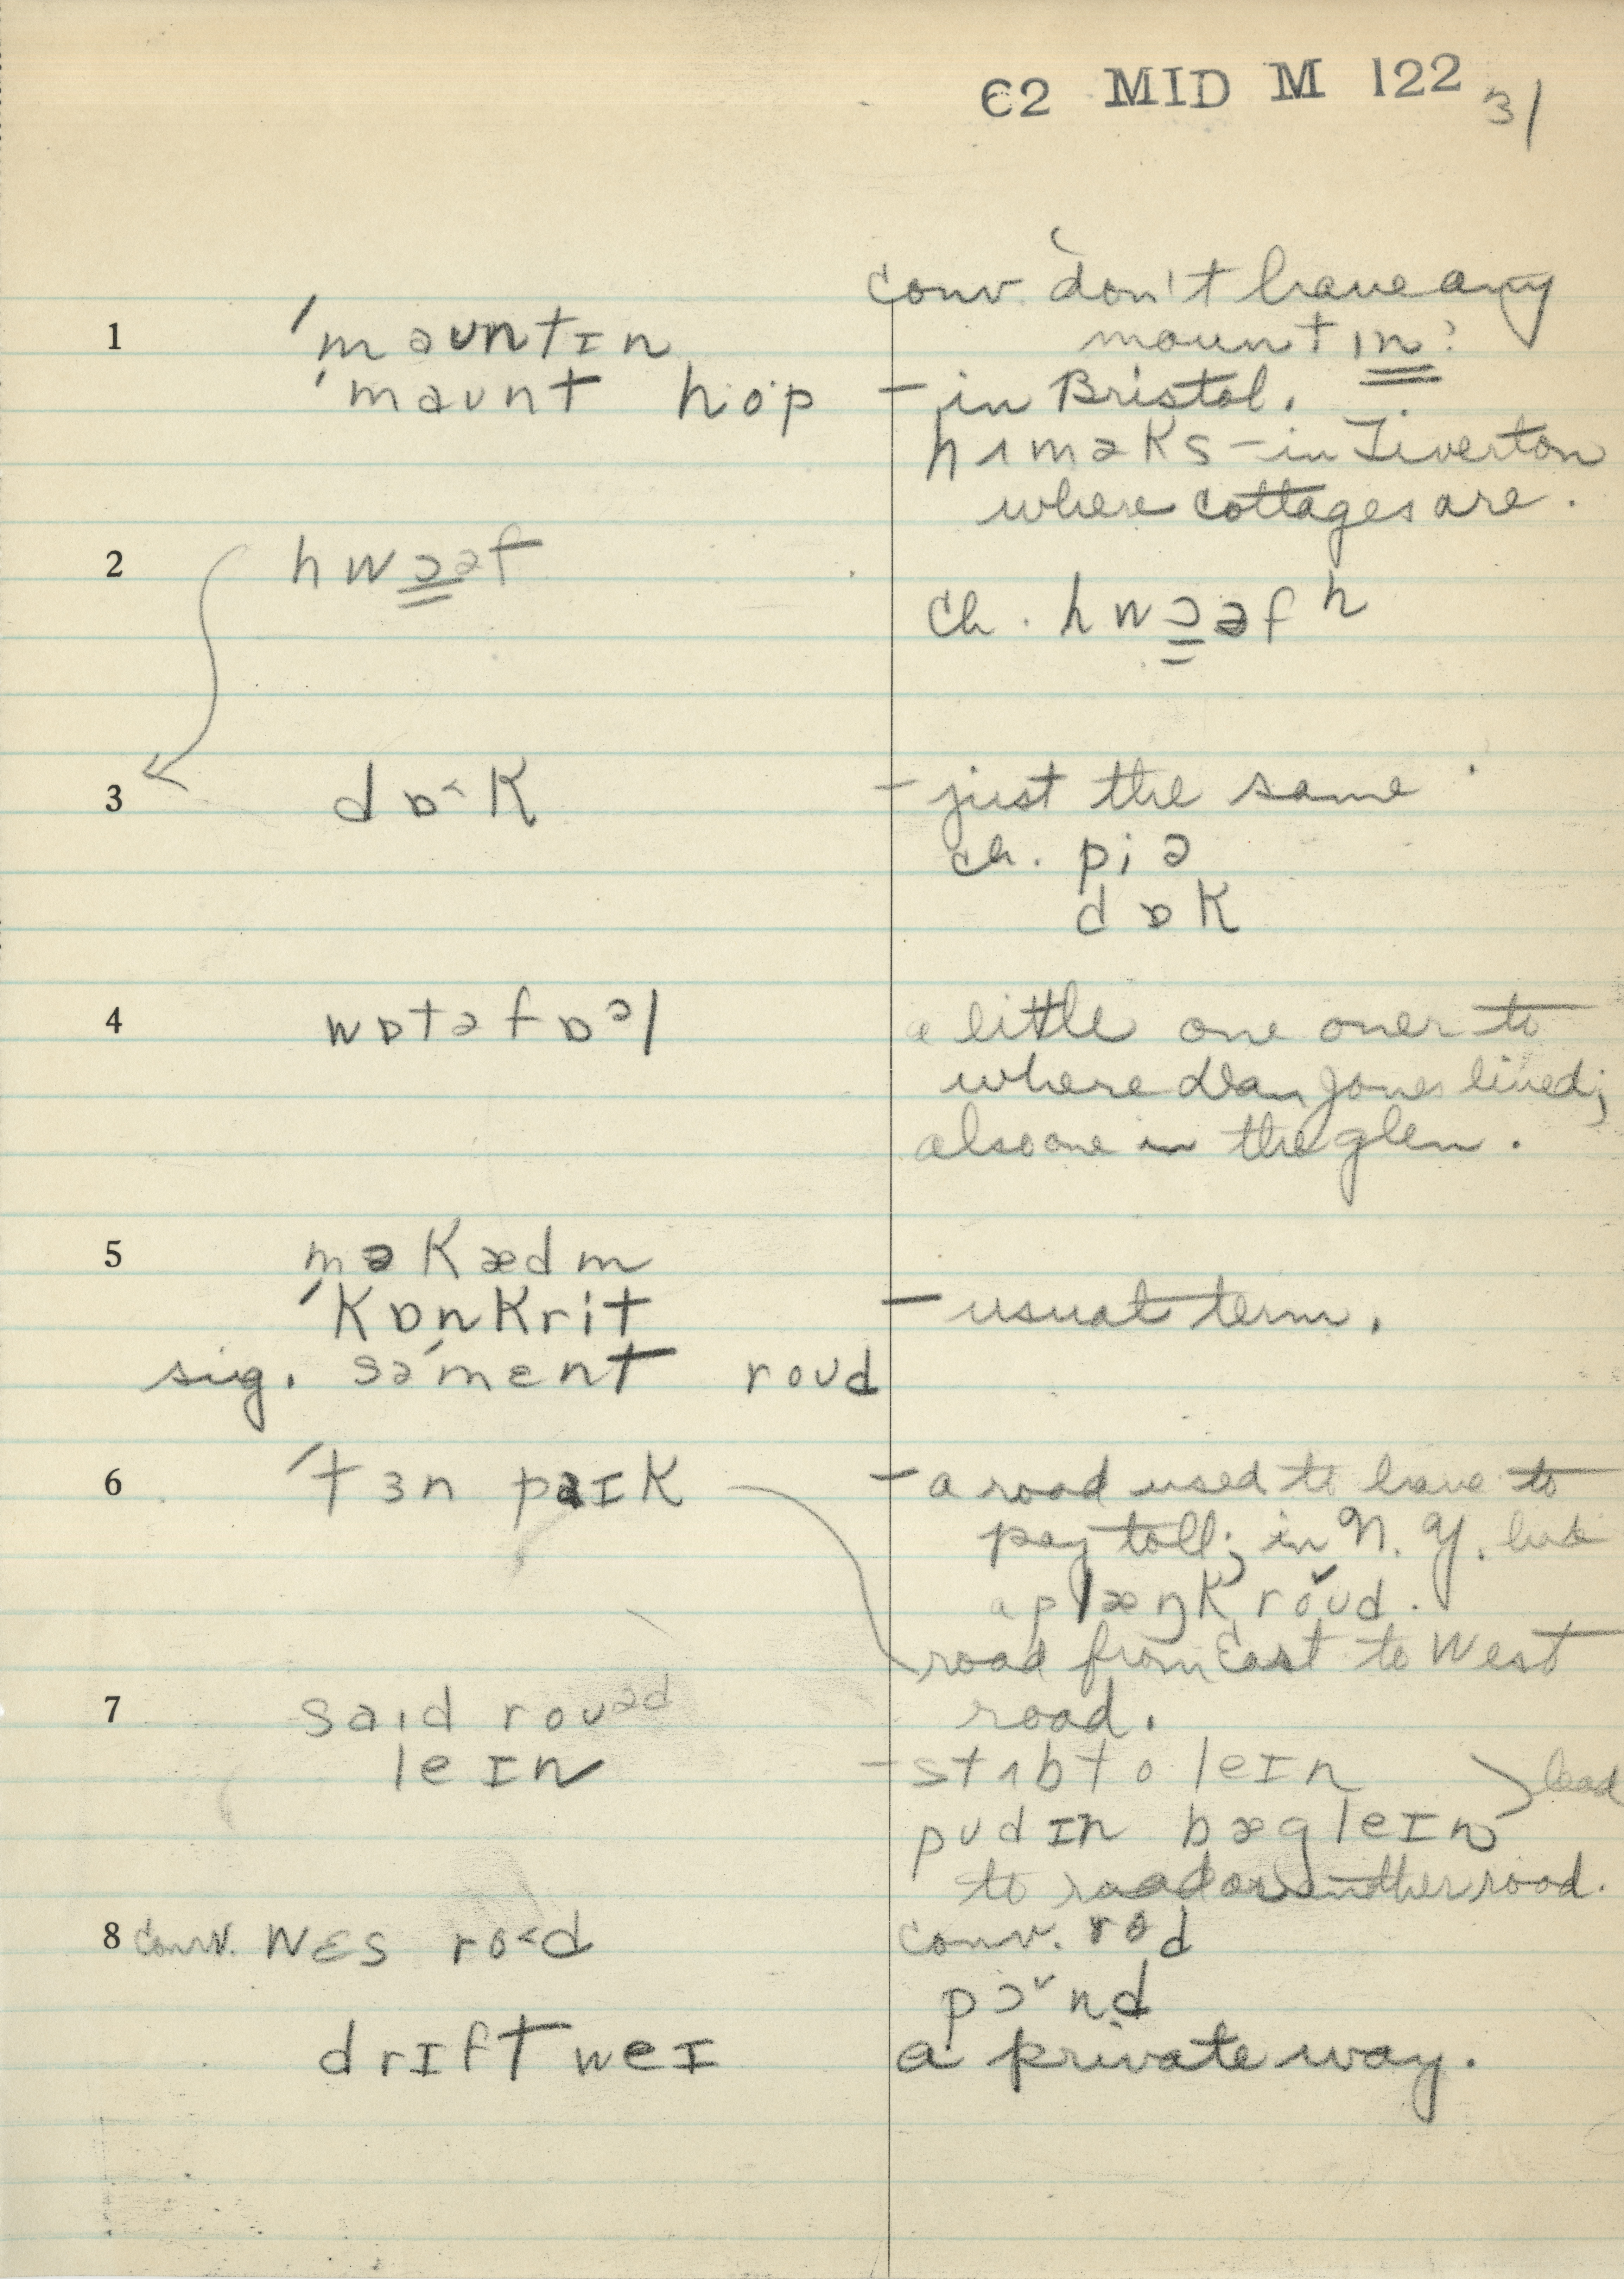 62 MID M 122 31
conv. don't have any
1 ˈmauntɪn mountɪn?
ˈmaʊnt hop – in Bristol.
hɪməks – in Tiverton
where cottages are.
2 hwɔəf
ch. hwɔəfʰ
3 dɒ˂k – just the same
ch. piə
dɒk
4 wɒtəfɒᵊl a little one over to
where Dan Jones lived;
also one in the glen.
5 məkædm
ˈkɒnkrit – usual term.
sig. səˈmɛnt roʊd
6 ˈtɜn paɪk – a road used to have to
pay toll; in N. Y. had
a plæŋk roʊ̌d.
road from East to West
7 saɪd roʊᵊd road.
leɪn – stʌbtə leɪn
pʊdɪn bæg leɪn lead
to road or another road.
8 conv. wɛs ro˂d conv. rɵd
pɔˇnd
drɪft weɪ a private way.